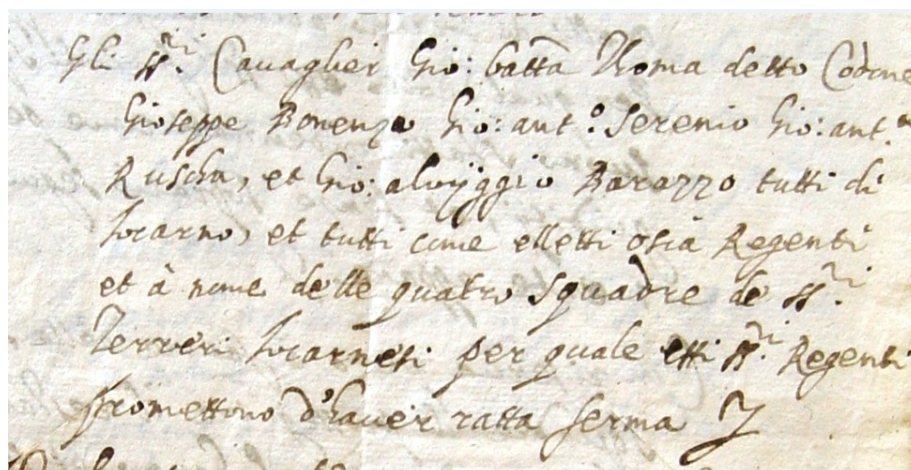 Gli ss.ri Cavaglier Gio: batta Roma detto Codone
Gioseppe Bonenzo Gio: ant.o Serenio Gio: ant.o
Ruscha, et Gio: alvijggio Barazzo tutti di
Locarno, et tutti come elletti osia Regenti
et à nome delle quatro squadre de ss.ri
Terreri Locarnesi per quale essi ss.ri Regenti
promettono d'haver ratta ferma